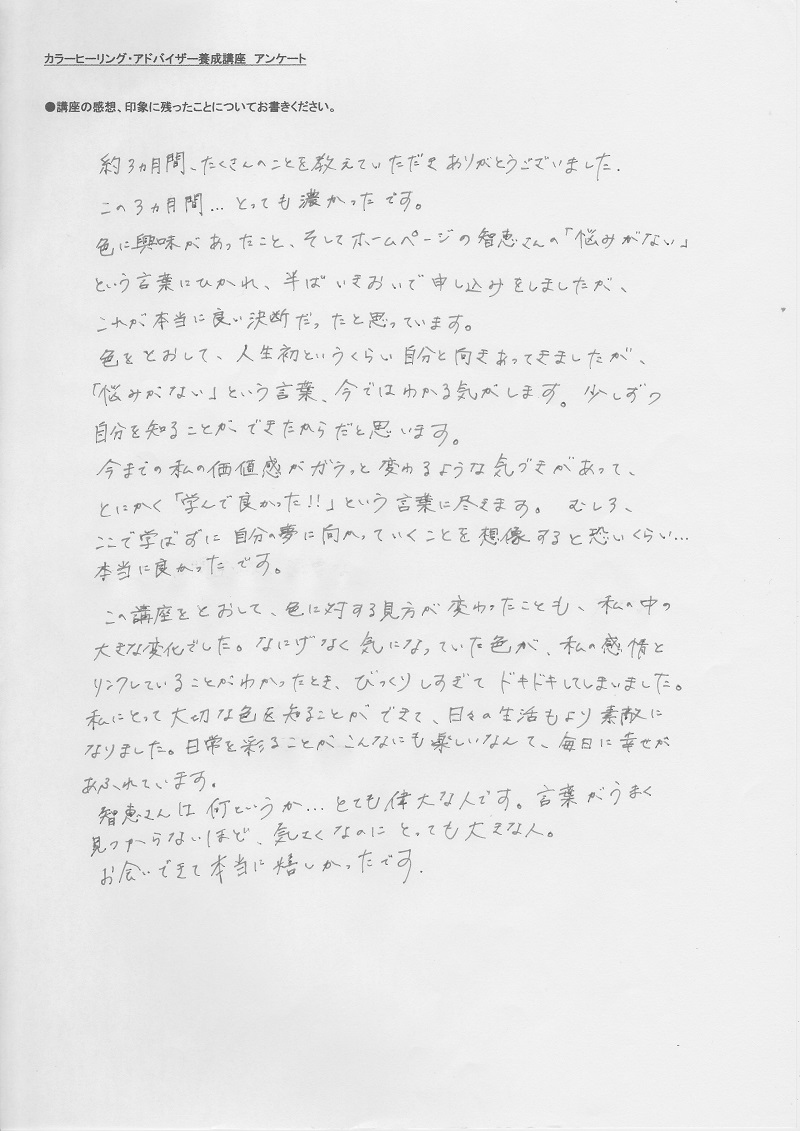 カラーヒーリング・アドバイザー養成講座 アンケート
●講座の感想、印象に残ったことについてお書きください。
約3ヵ月間、たくさんのことを教えていただきありがとうございました.
この3ヵ月間…とっても濃かったです。
色に興味があったこと、そしてホームページの智恵さんの「悩みがない」
という言葉にひかれ、半ばいきおいで申し込みをしましたが、
これが本当に良い決断だったと思っています。
色をとおして、人生初というくらい自分と向きあってきましたが、
「悩みがない」という言葉、今ではわかる気がします。少しずつ
自分を知ることができたからだと思います。
今までの私の価値感がガラッと変わるような気づきがあって、
とにかく「学んで良かった!!」という言葉に尽きます。むしろ、
ここで学ばずに自分の夢に向かっていくことを想像すると恐いくらい…
本当に良かったです。
この講座をとおして、色に対する見方が変わったことも、私の中の
大きな変化でした。なにげなく気になっていた色が、私の感情と
リンクしていることがわかったとき、びっくりしすぎてドキドキしてしまいました。
私にとって大切な色を知ることができて、日々の生活もより素敵に
なりました。日常を彩ることがこんなにも楽しいなんて、毎日に幸せが
あふれています。
智恵さんは何というか…とても偉大な人です。言葉がうまく
見つからないほど、気さくなのにとっても大きな人。
お会いできて本当に嬉しかったです.